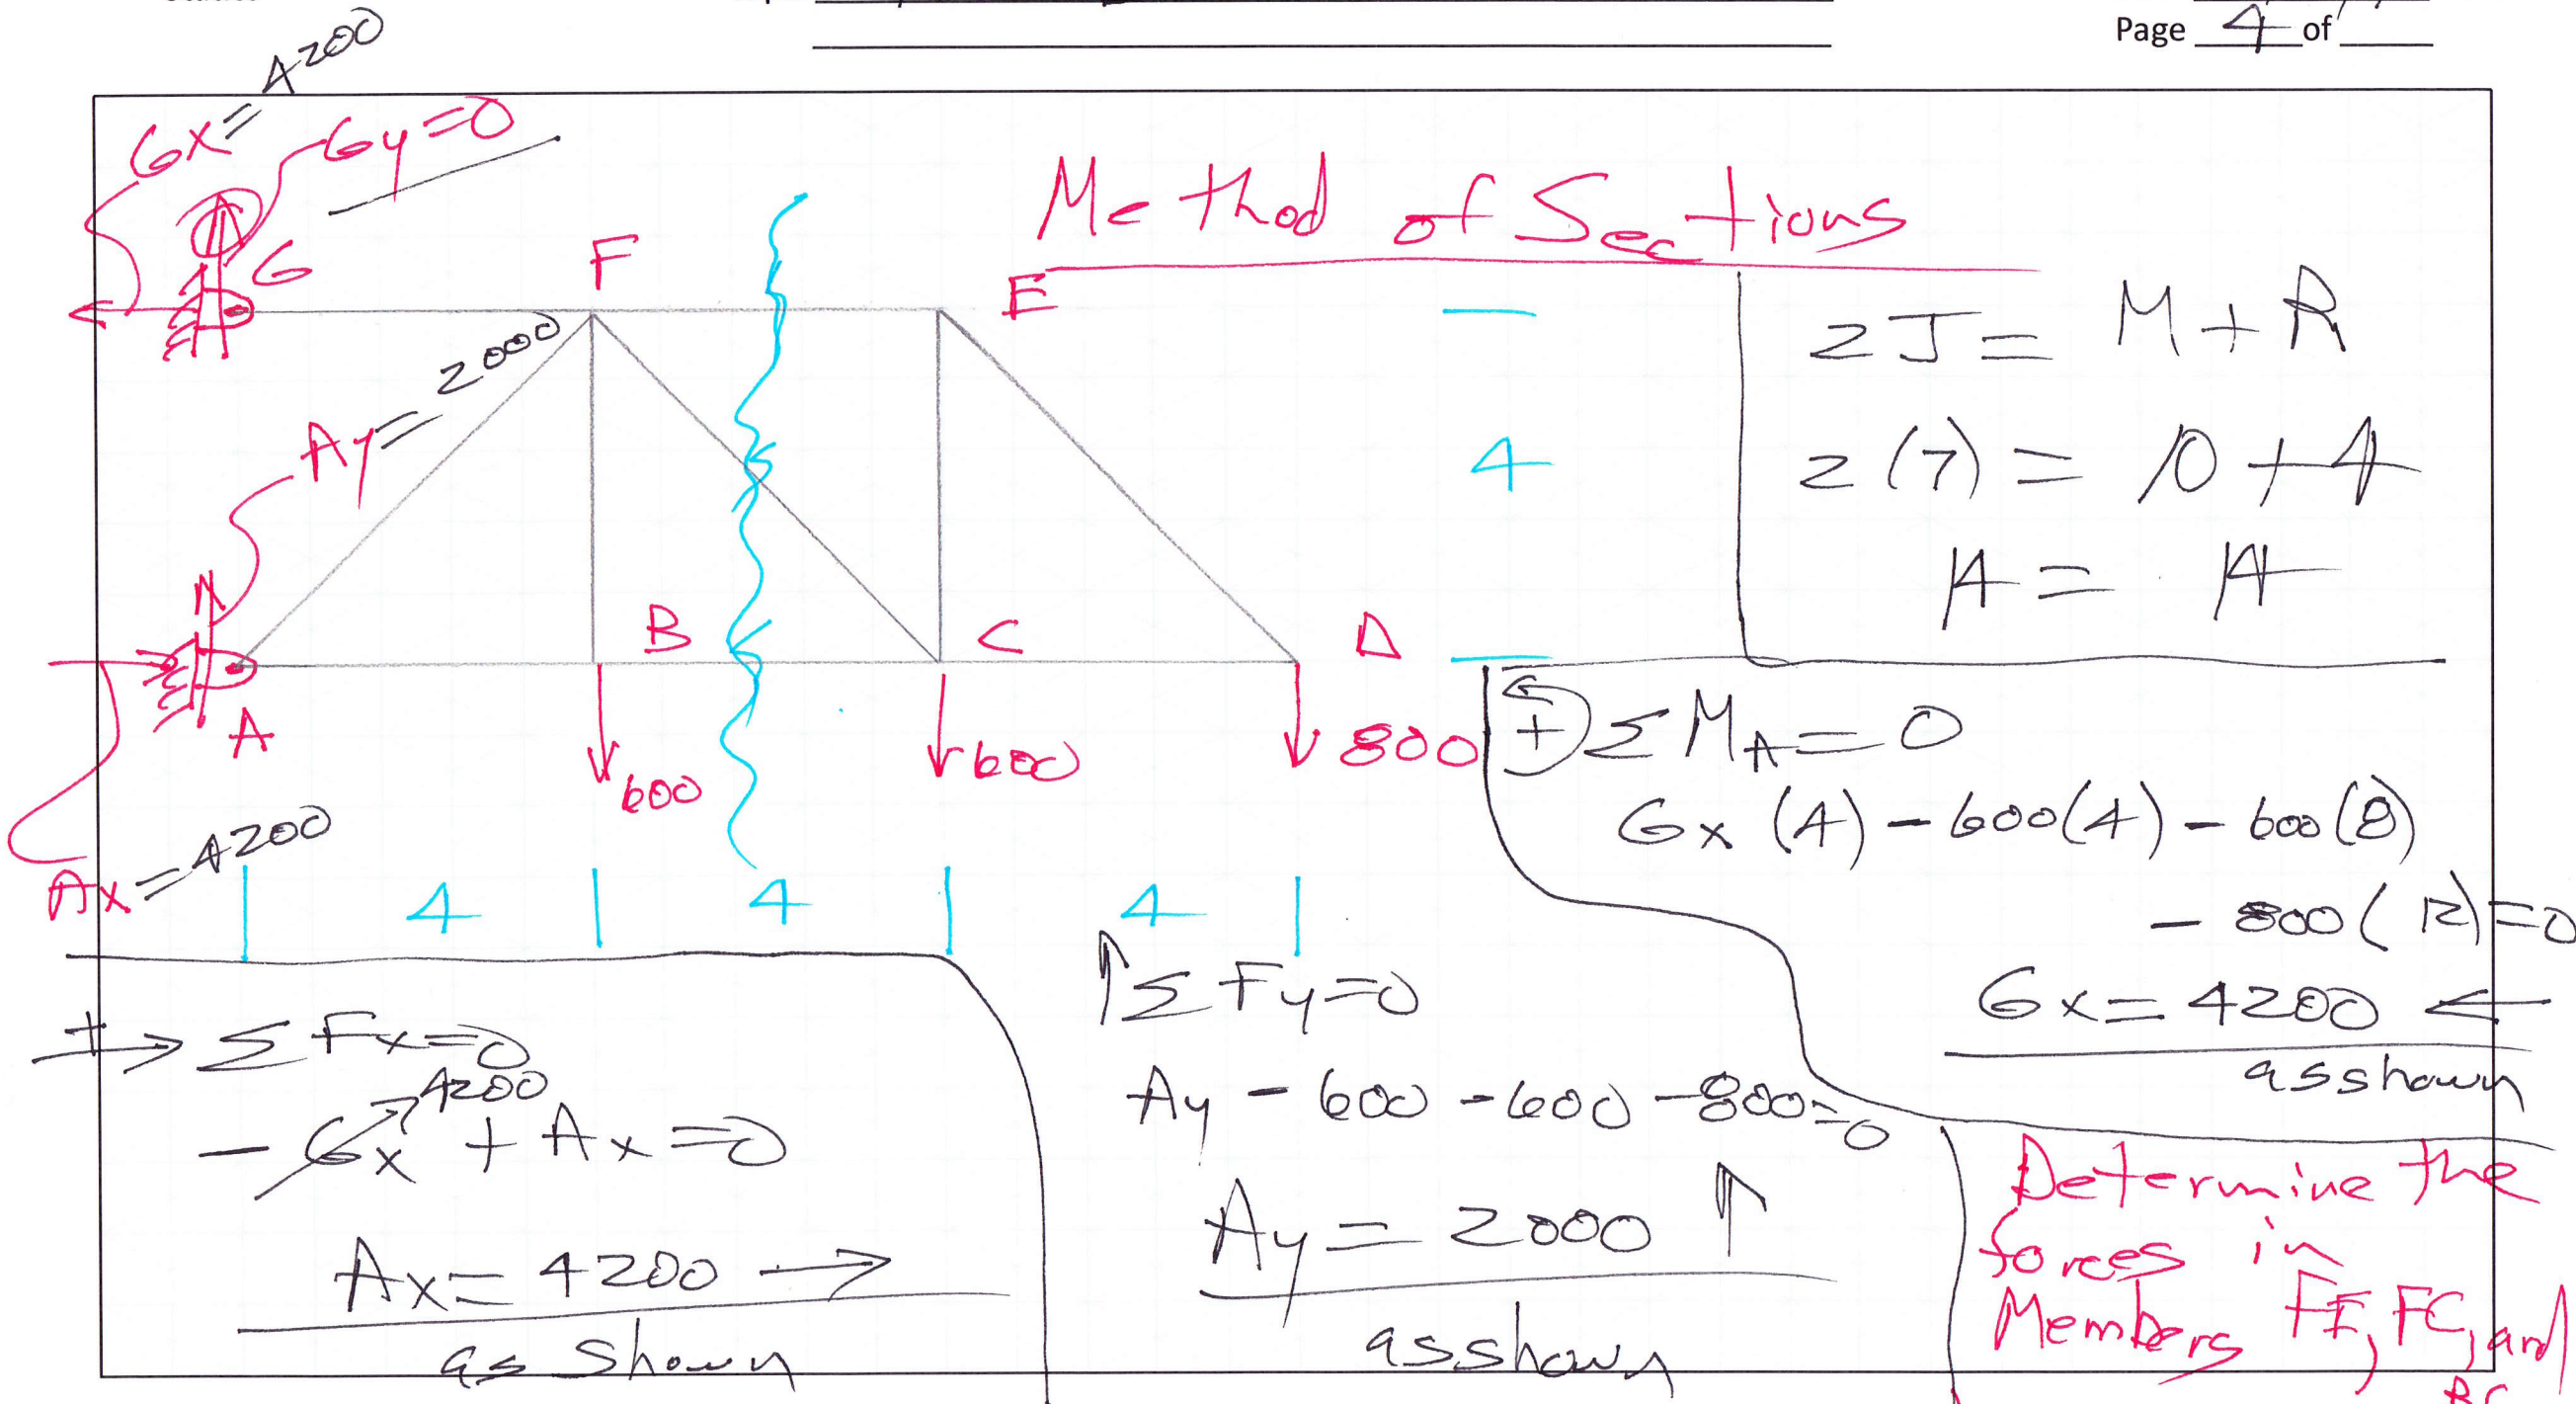 Page 4 of
Gx = 4200
Gy = 0
Method of Sections
G
F
E
Ay = 2000
4
2J = M + R
2(7) = 10 + 4
14 = 14
A
B
C
D
600
600
800
Ax = 4200
4 4 4
+ ΣMA = 0
Gx (4) - 600(4) - 600(8)
- 800(12) = 0
Gx = 4200 ←
as shown
+→ ΣFx = 0
4200
- Gx + Ax = 0
Ax = 4200 →
as shown
↑ΣFy = 0
Ay - 600 - 600 - 800 = 0
Ay = 2000 ↑
as shown
Determine the
forces in
Members FE, FC, and
BC